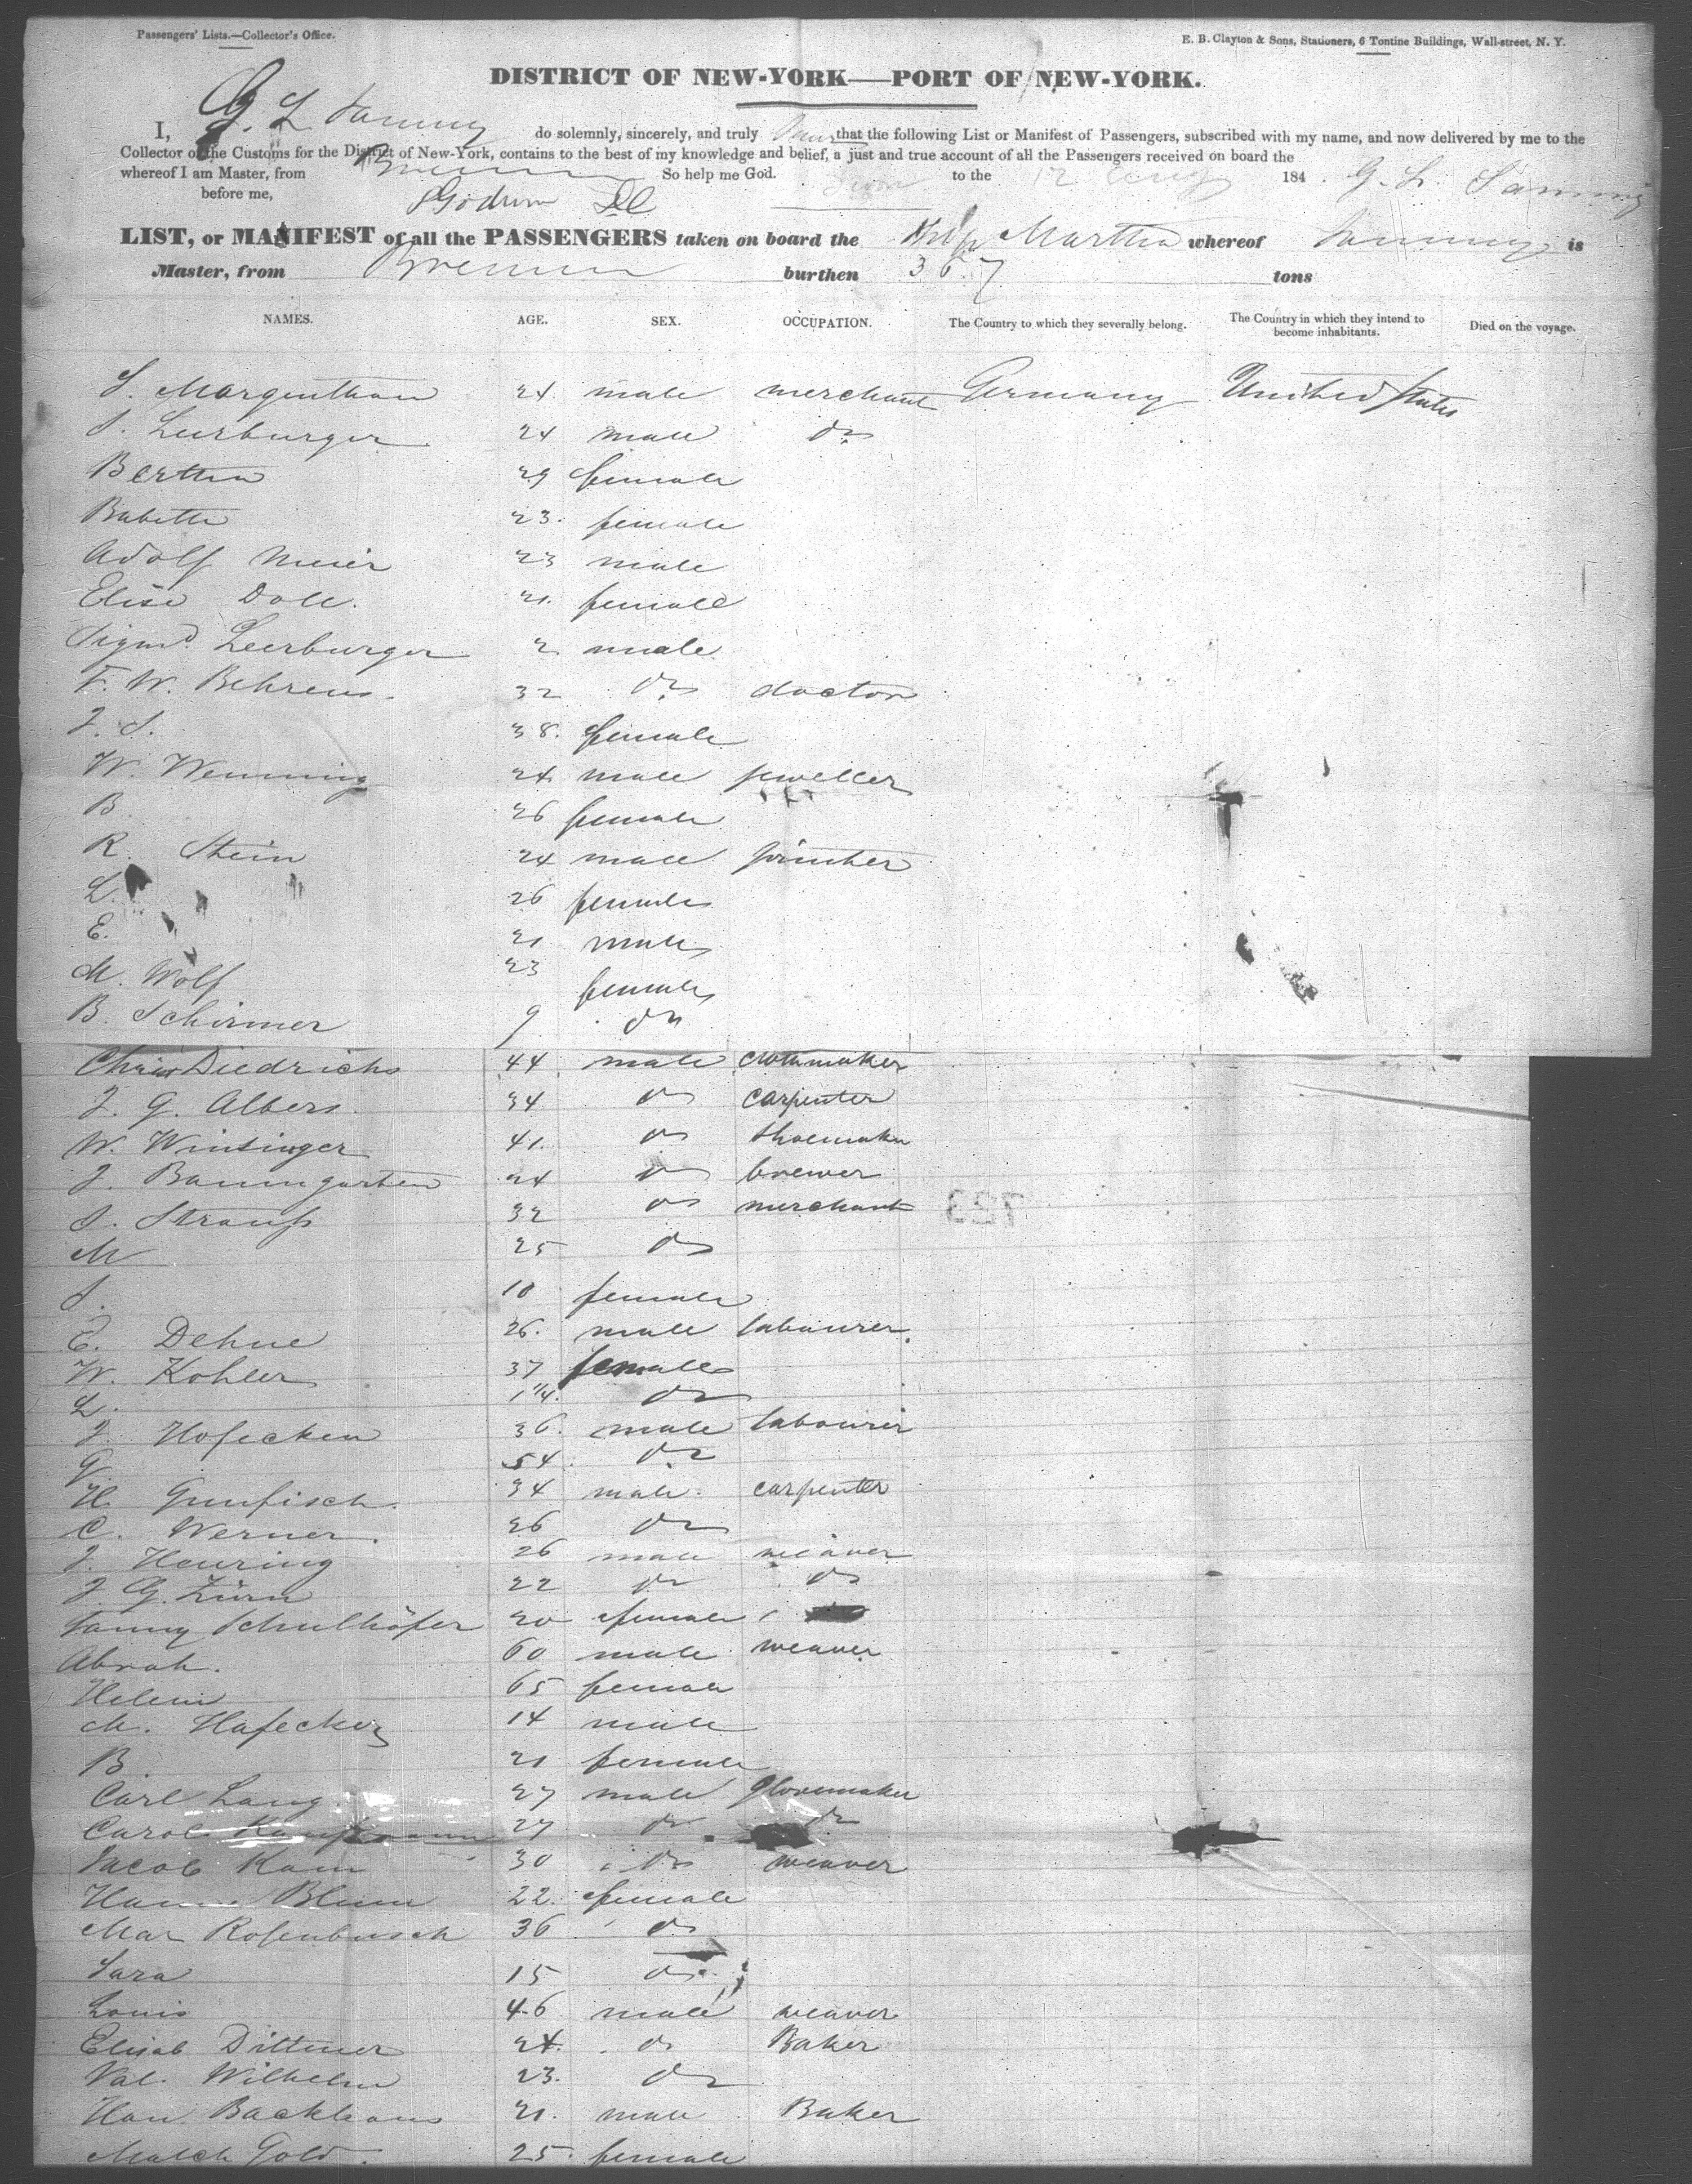 Passengers' Lists.—Collector's Office.
E. B. Clayton & Sons, Stationers, 6 Tontine Buildings, Wall-street, N. Y.
DISTRICT OF NEW-YORK—PORT OF NEW-YORK.
I, G. L. do solemnly, sincerely, and truly that the following List or Manifest of Passengers, subscribed with my name, and now delivered by me to the
Collector of the Customs for the District of New-York, contains to the best of my knowledge and belief, a just and true account of all the Passengers received on board the
whereof I am Master, from Bremen So help me God. to the 12 Aug 184 . G. L.
before me,
LIST, or MANIFEST of all the PASSENGERS taken on board the Ship Martha whereof is
Master, from Bremen burthen 367 tons
NAMES. AGE. SEX. OCCUPATION. The Country to which they severally belong. The Country in which they intend to become inhabitants. Died on the voyage.
S. Morgenthau 24 male merchant Germany United States
S. Leerburger 24 male do
Bertha 29 female
Babette 23. female
Adolf Meier 23 male
Elise Doll. 21. female
Sigmd. Leerburger 2 male
F. W. Behrens. 32 do doctor
J. S. 38. female
W. Wenning 24 male jeweller
B. 26 female
R. Stein 24 male printer
L. 26 female
E. 21 male
M. Wolf 23 female
B. Schirmer 9 do
Diedrichs 44 male clothmaker
J. G. Albers 34 do carpenter
W. Winsinger 41. do shoemaker
J. Baumgarten 24 do brewer
S. Strauss 32 do merchant
723
M 25 do
S. 10 female
E. Dehne 26. male labourer.
W. Kohler 37 female
L. 1 1/4. do
J. Hofecken 36. male labourer
G 54. do
H. 34 male. carpenter
C. Werner. 26 do
J. Heuring 26 male weaver
J. G. Zürn 22 do do
Fanny Schulhöfer 20 female
Abrah. 60 male weaver
Helene 65 female
M. Hafecker 14 male
B. 21 female
Carl Lang. 27 male glovemaker
Carol 27 do do
Jacob Kam 30 do weaver
Blum 22. female
Mar Rosenbusch 36 do
Sara 15 do
Louis 46 male weaver
Elisab Dittmer 24. do Baker
Val. Wilhelm 23. do
Han Backhaus 21. male Baker
Malch Gold. 25. female